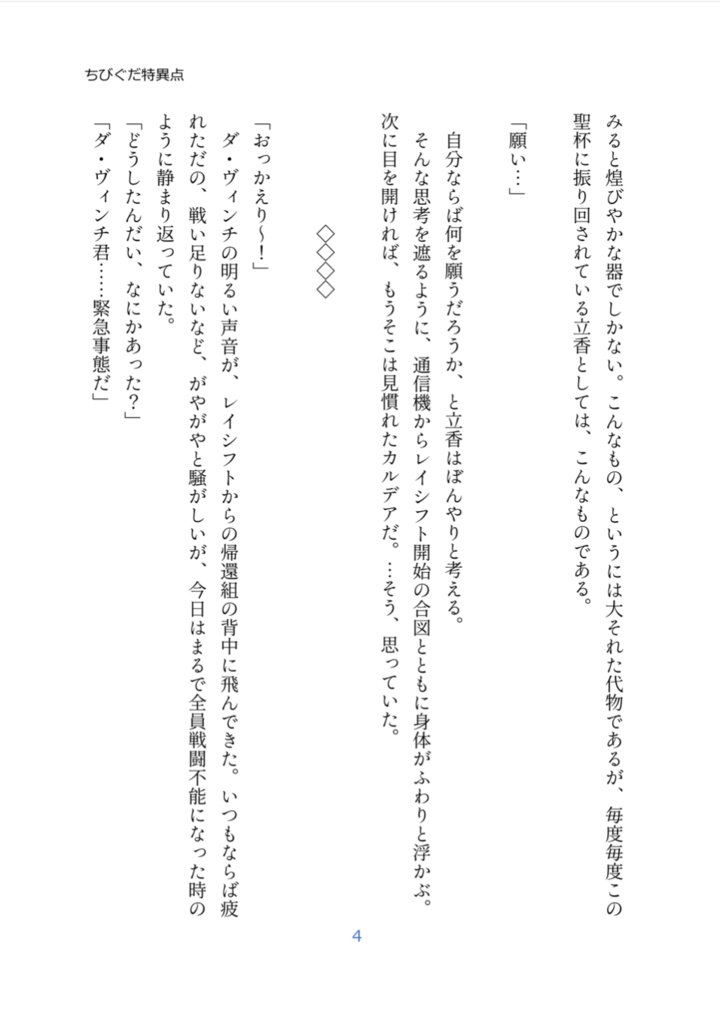 ちびぐだ特異点
みると煌びやかな器でしかない。こんなもの、というには大それた代物であるが、毎度毎度この
聖杯に振り回されている立香としては、こんなものである。
「願い…」
自分ならば何を願うだろうか、と立香はぼんやりと考える。
そんな思考を遮るように、通信機からレイシフト開始の合図とともに身体がふわりと浮かぶ。
次に目を開ければ、もうそこは見慣れたカルデアだ。…そう、思っていた。
◇◇◇◇
「おっかえり～！」
ダ・ヴィンチの明るい声音が、レイシフトからの帰還組の背中に飛んできた。いつもならば疲
れただの、戦い足りないなど、がやがやと騒がしいが、今日はまるで全員戦闘不能になった時の
ように静まり返っていた。
「どうしたんだい、なにかあった？」
「ダ・ヴィンチ君……緊急事態だ」
4